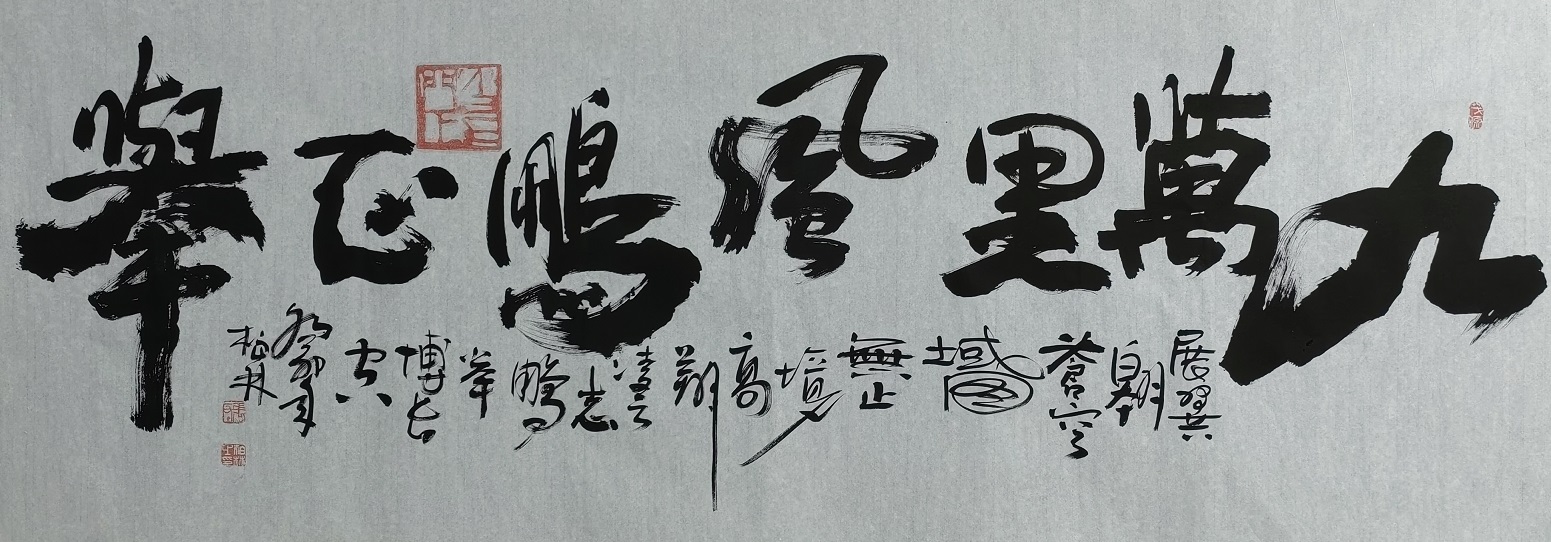 九萬里風鵬正舉
展翼
翱
蒼穹
域國
無止
境
高
翔
凌雲
志
鵬
舉
博長
空